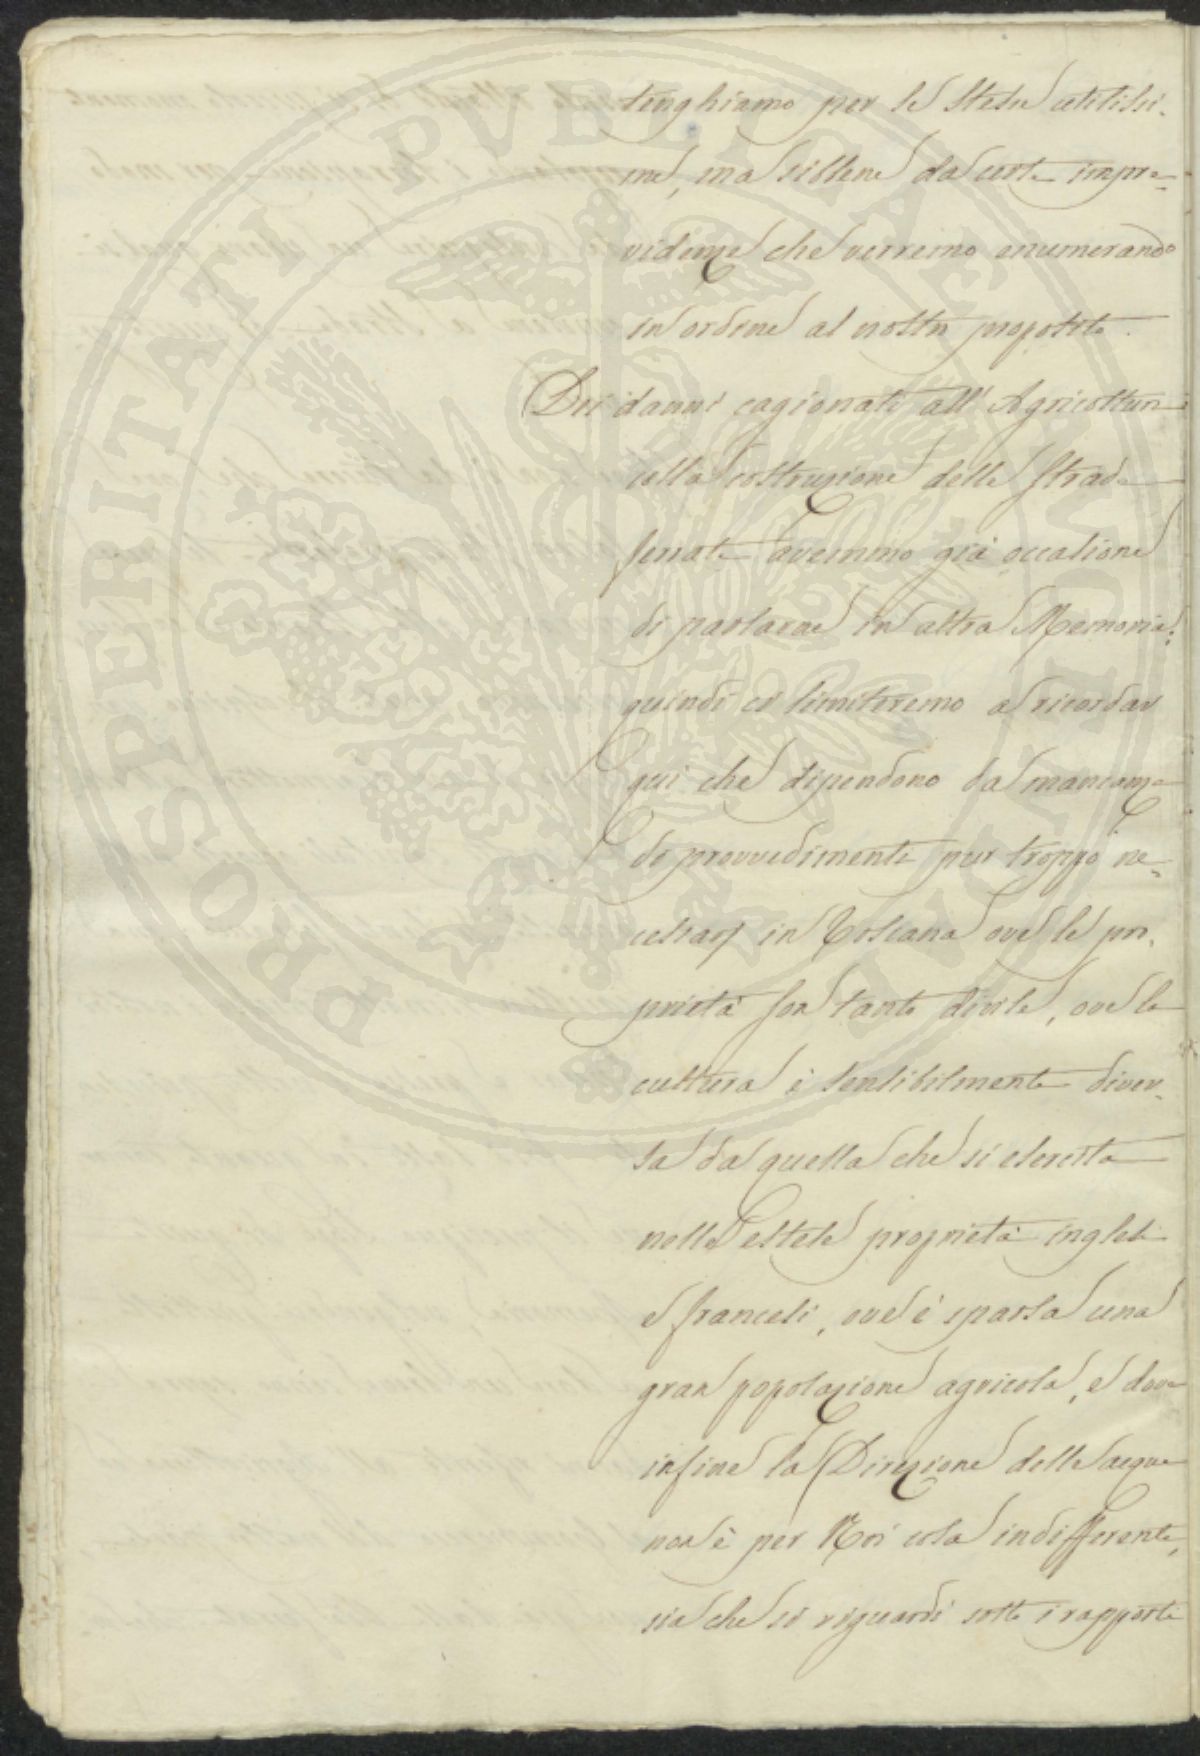 tenghiamo per le stesse utilissi-
me, ma sibbene da certe impre-
videnze che verremo enumerando
in ordine al nostro proposito.
Dei danni cagionati all'Agricoltura
colla costruzione delle strade
ferrate avemmo già occasione
di parlarne in altra Memoria:
quindi ci limiteremo a ricordar
qui che dipendono da mancanza
di provvedimenti pur troppo ne-
cessarj in Toscana ove le pro-
prietà son tanto divise, ove la
cultura è sensibilmente diver-
sa da quella che si esercita
nelle estese proprietà inglesi
e francesi, ove è sparsa una
gran popolazione agricola, e dove
infine la Direzione delle acque
non è per Noi cosa indifferente,
sia che si riguardi sotto i rapporti
PROSPERITATI PVBLICAE AVGENDAE